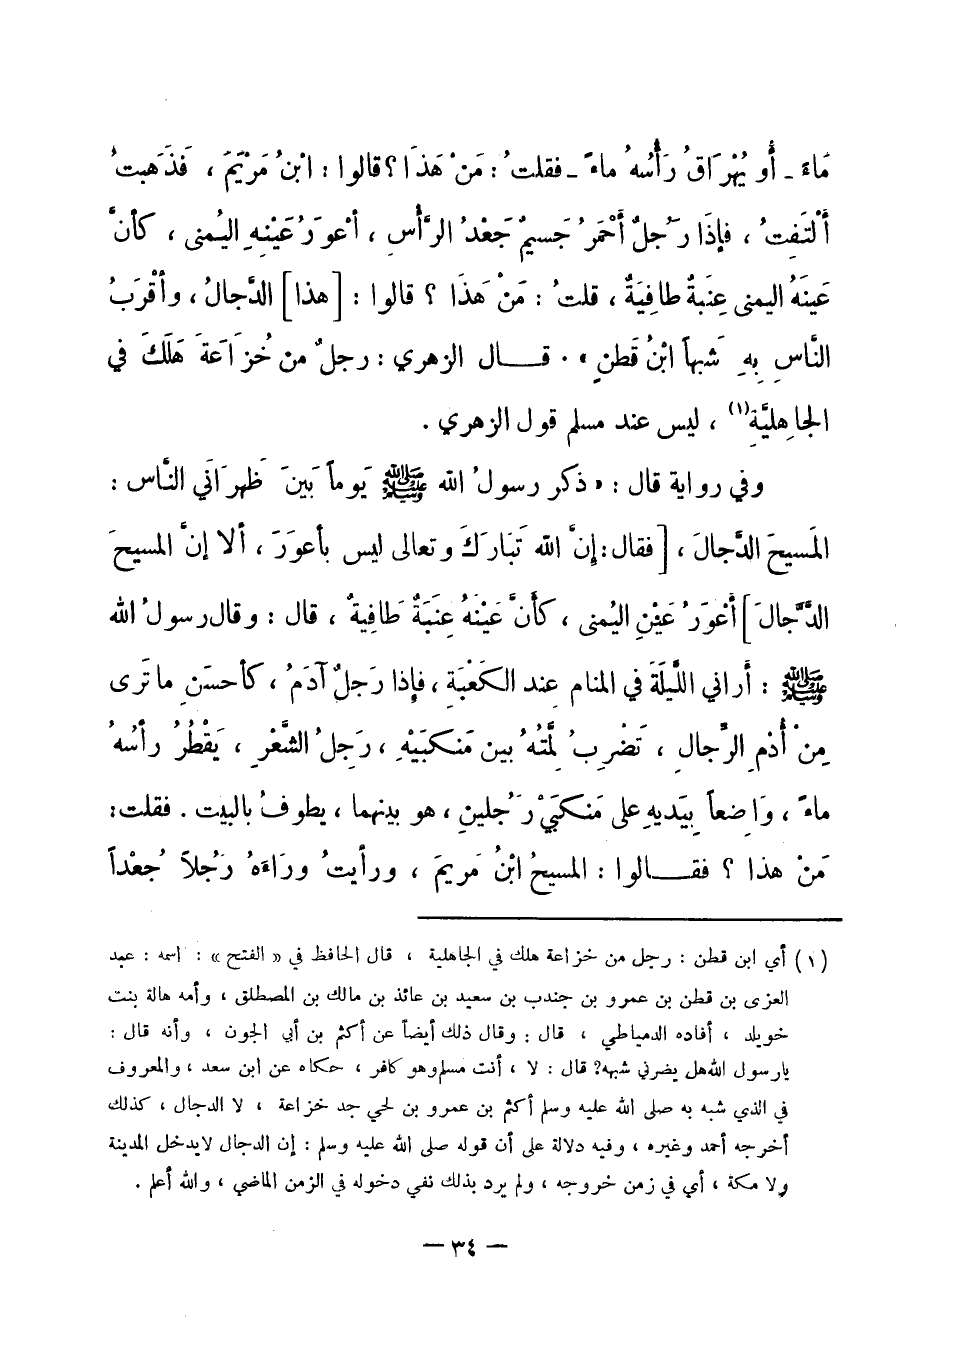 مَاءَ ـ أو يُهْرَاقُ رَأْسُهُ ماءً ـ فقلتُ : مَنْ هَذَا ؟ قالوا : ابْنُ مَرْيَمَ ، فَذَهبتُ
أَلْتَفِتُ ، فإذَا رَجُلٌ أحْمَرُ جَسيمٌ جَعْدُ الرَّأْسِ ، أعْوَرُ عَيْنِهِ اليُمنى ، كأنَّ
عَينَهُ اليمنى عِنَبةٌ طافِيَةٌ ، قلتُ : مَنْ هَذَا ؟ قالوا : [ هذا ] الدَّجالُ ، وأقْرَبُ
النَّاسِ بِهِ شَبهاً ابْنُ قَطَنٍ » . قـــال الزهري : رجلٌ من خُزَاعَةَ هَلَكَ في
الجاهِليَّةِ (١) ، ليس عند مسلم قول الزهري .
وفي رواية قال : « ذكر رسولُ الله ﷺ يَوماً بَينَ ظَهرَانَي النَّاس :
المَسيحَ الدَّجالَ ، [ فقال : إنَّ الله تَبَارَكَ وتعالى ليس بأعوَرَ ، ألا إنَّ المسيحَ
الدَّجّالَ ] أعْوَرُ عَيْنِ اليُمنى ، كأنَّ عَيْنَهُ عِنَبَةٌ طَافِيةٌ ، قال : وقال رسولُ الله
ﷺ : أراني اللَّيلَةَ في المنام عِند الكَعْبَةِ ، فإذا رَجلٌ آدَمُ ، كأحسَنِ ما تَرى
مِنْ أُدْمِ الرِّجالِ ، تَضْرِبُ لِمَّتُهُ بين مَنكبَيْهِ ، رَجِلُ الشَّعْرِ ، يَقْطُرُ رأسُهُ
ماءً ، وَاضِعاً بِيَديهِ على مَنكبَيْ رَجُلينِ ، هو بينهما ، يطوفُ بالبيت . فقلت :
مَنْ هذا ؟ فقـــالوا : المسيحُ ابْنُ مَريمَ ، ورأيتُ ورَاءَهُ رَجُلاً جَعْداً
(١) أي ابن قطن : رجل من خزاعة هلك في الجاهلية ، قال الحافظ في « الفتح » : اسمه : عبد
العزى بن قطن بن عمرو بن جندب بن سعيد بن عائذ بن مالك بن المصطلق ، وأمه هالة بنت
خويلد ، أفاده الدمياطي ، قال : وقال ذلك أيضاً عن أكثم بن أبي الجون ، وأنه قال :
يارسول الله هل يضرني شبهه؟ قال : لا ، أنت مسلم وهو كافر ، حكاه عن ابن سعد ، والمعروف
في الذي شبه به صلى الله عليه وسلم أكثم بن عمرو بن لحي جد خزاعة ، لا الدجال ، كذلك
أخرجه أحمد وغيره ، وفيه دلالة على أن قوله صلى الله عليه وسلم : إن الدجال لايدخل المدينة
ولا مكة ، أي في زمن خروجه ، ولم يرد بذلك نفي دخوله في الزمن الماضي ، والله أعلم .
— ٣٤ —